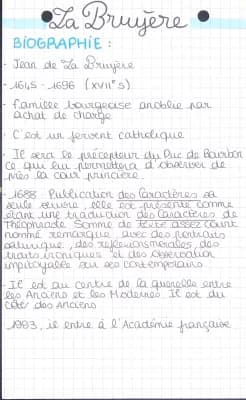 La Bruyère
BIOGRAPHIE :
- Jean de La Bruyère
- 1645 - 1696 (XVIIe s)
- famille bourgeoise anoblie par
achat de charge
- C'est un fervent catholique
- Il sera le précepteur du Duc de Bourbon
ce qui lui permettera d'observer de
près la cour princière.
- 1688 : Publication des Caractères sa
seule œuvre, elle est présente comme
étant une traduction des Caractères de
Théophraste Somme de texte assez court
comme remarque avec des portraits
satirique, des réflexions morales, des
traits ironiques et des observation
impitoyables sur ses contemporains
- Il est au centre de la querelle entre
les Anciens et les Modernes. Il est du
côté des Anciens
- 1693, il entre à l'Académie française